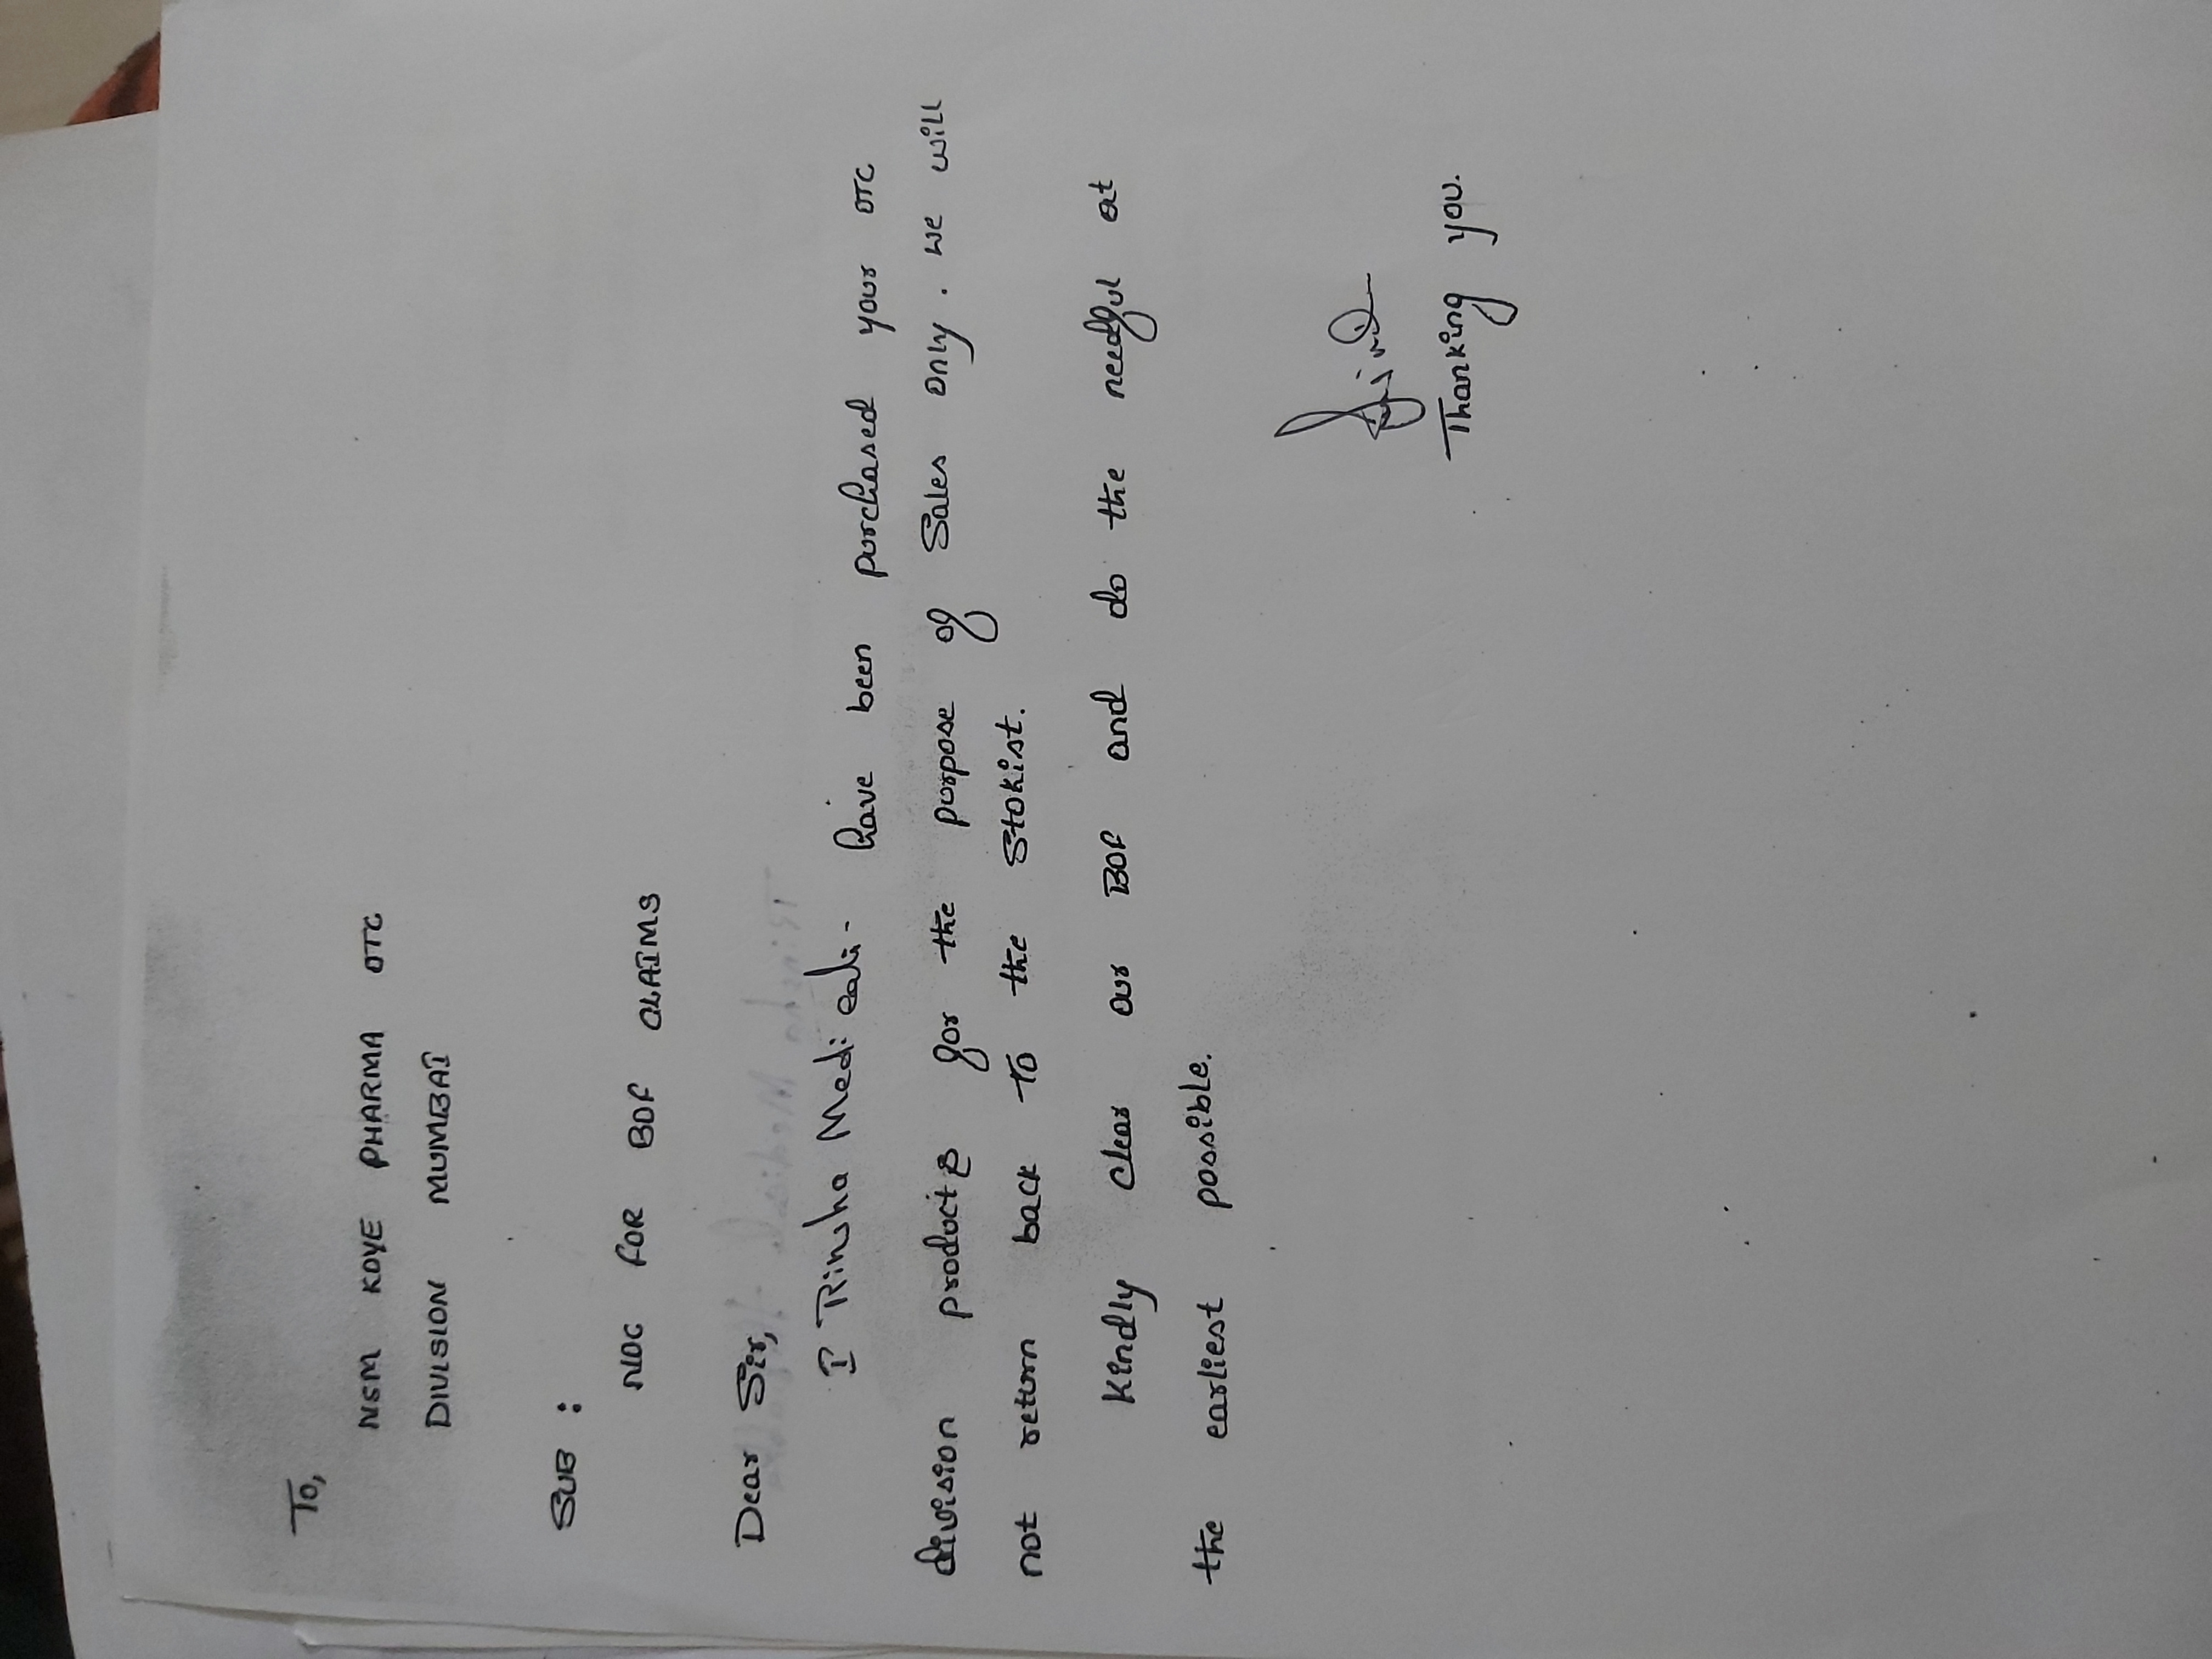 To,
NSM KOYE PHARMA OTC
DIVISION MUMBAI
SUB :
NOC FOR BDF CLAIMS
Dear Sir,
I Medi have been purchased your OTC
division products for the purpose of Sales only. we will
not return back to the Stokist.
Kindly clear our BDF and do the needful at
the earliest possible.
Thanking you.